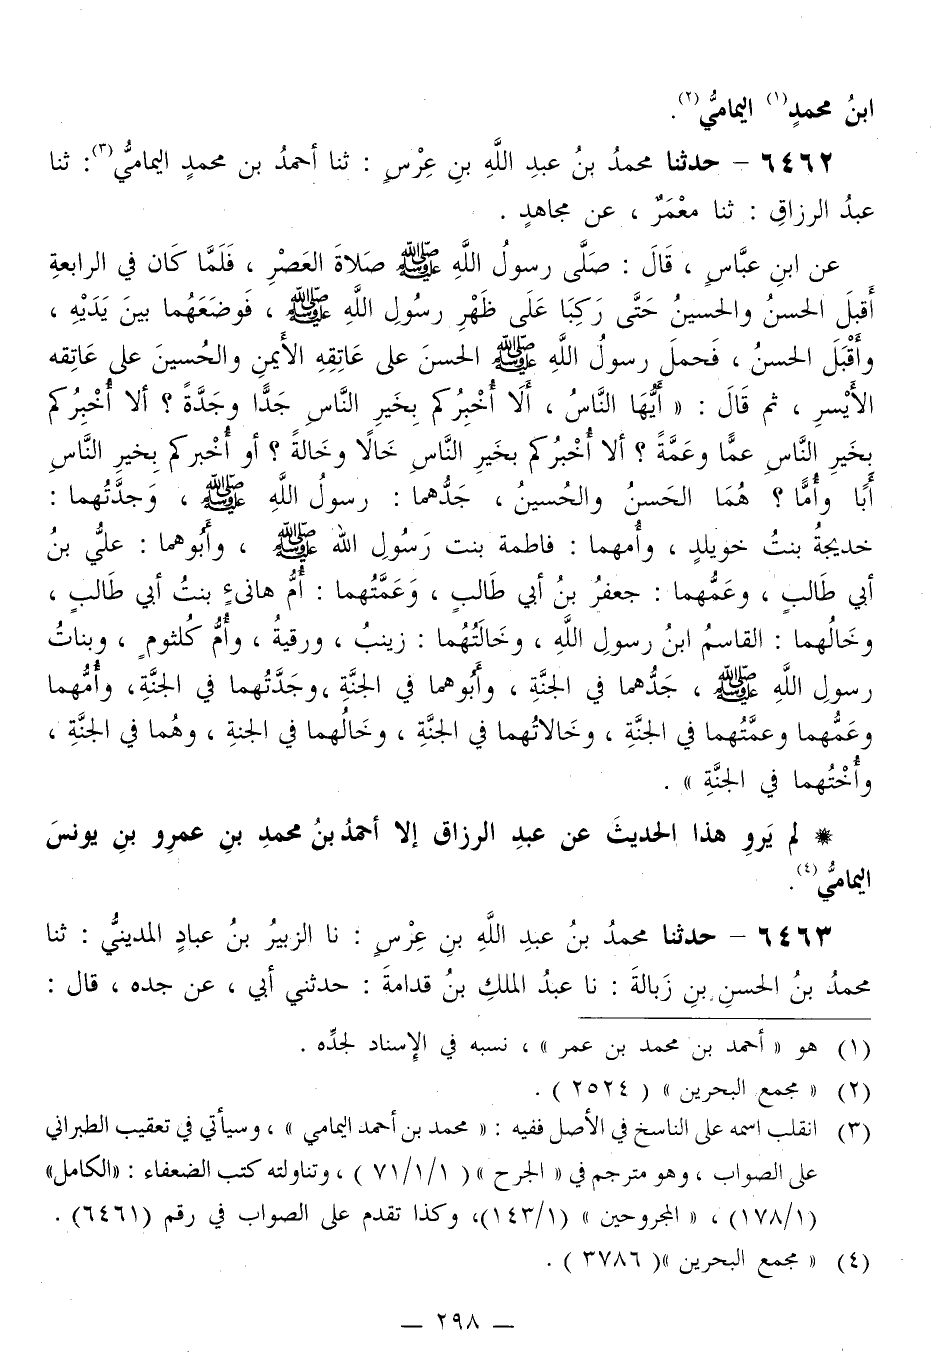 ابنُ محمدٍ(١) اليماميُّ(٢).
٦٤٦٢ – حدثنا محمدُ بنُ عبدِ اللَّهِ بنِ عِرْسٍ : ثنا أحمدُ بن محمدٍ اليماميُّ(٣): ثنا
عبدُ الرزاقِ : ثنا معْمَرٌ ، عن مجاهدٍ .
عن ابنِ عبَّاسٍ ، قَالَ : صلَّى رسولُ اللَّهِ ﷺ صلاةَ العَصْرِ ، فَلَمَّا كَان في الرابعةِ
أَقبلَ الحسنُ والحسينُ حَتَّى رَكِبَا عَلَى ظَهْرِ رسُولِ اللَّهِ ﷺ ، فَوضَعَهُما بينَ يَدَيْهِ ،
وأَقْبَلَ الحسنُ ، فَحملَ رسولُ اللَّهِ ﷺ الحسنَ على عاتِقِهِ الأَيمنِ والحُسينَ على عَاتِقه
الأَيْسرِ ، ثم قَالَ : « أَيُّهَا النَّاسُ ، أَلَا أُخْبِرُكم بِخَيرِ النَّاسِ جَدًّا وجَدَّةً ؟ ألا أُخْبِرُكم
بِخَيرِ النَّاسِ عمًّا وعَمَّةً ؟ ألا أُخْبُركم بخَيرِ النَّاسِ خَالًا وخَالةً ؟ أو أُخْبركم بِخيرِ النَّاسِ
أَبًا وأُمًّا ؟ هُمَا الحَسنُ والحُسينُ ، جَدُّهما : رسولُ اللَّهِ ﷺ ، وَجدَّتُهما :
خديجةُ بنتُ خويلدٍ ، وأُمهما : فاطمة بنت رَسُولِ الله ﷺ ، وأَبُوهما : عليُّ بنُ
أبي طَالبٍ ، وعَمُّهما : جعفرُ بنُ أبي طَالبٍ ، وَعَمَّتُهما : أُمُّ هانىءٍ بنتُ أبي طَالبٍ ،
وخَالُهما : القاسمُ ابنُ رسولِ اللَّهِ ، وخَالَتُهُما : زينبُ ، ورقيةُ ، وأُمُّ كلثومٍ ، وبناتُ
رسولِ اللَّهِ ﷺ ، جَدُّهما في الجنَّةِ ، وأَبُوهما في الجنَّةِ ،وجَدَّتُهما في الجنَّةِ، وأُمُّهما
وعَمُّهما وعمَّتُهما في الجنَّةِ ، وخَالاتُهما في الجنَّةِ ، وخَالُهما في الجنةِ ، وهُما في الجنَّةِ ،
وأُخْتُهما في الجنَّةِ » .
* لم يَروِ هذا الحديثَ عن عبدِ الرزاق إلا أحمدُ بنُ محمدِ بنِ عمرِو بنِ يونسَ
اليماميُّ(٤).
٦٤٦٣ – حدثنا محمدُ بنُ عبدِ اللَّهِ بنِ عِرْسٍ : نا الزبيرُ بنُ عبادٍ المدينيُّ : ثنا
محمدُ بنُ الحسنِ بنِ زَبالةَ : نا عبدُ الملكِ بنُ قدامةَ : حدثني أبي ، عن جده ، قال :
(١) هو « أحمد بن محمد بن عمر » ، نسبه في الإسناد لجدِّه .
(٢) « مجمع البحرين » ( ٢٥٢٤ ) .
(٣) انقلب اسمه على الناسخ في الأصل ففيه : « محمد بن أحمد اليمامي » ، وسيأتي في تعقيب الطبراني
على الصواب ، وهو مترجم في « الجرح » ( ٧١/١/١ ) ، وتناولته كتب الضعفاء : «الكامل»
(١٧٨/١) ، « المجروحين » (١٤٣/١)، وكذا تقدم على الصواب في رقم (٦٤٦١) .
(٤) « مجمع البحرين »( ٣٧٨٦ ) .
— ٢٩٨ —